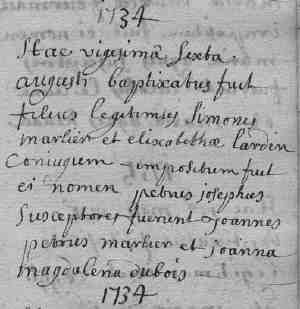 1734
Hac vigesima sexta
augusti baptizatus fuit
filius legitimus simonis
marlier et elisabethae lardin
Coniugum impositum fuit
ei nomen petrus josephus
susceptores fuerunt joannes
petrus marlier et joanna
magdalena dubois
1734